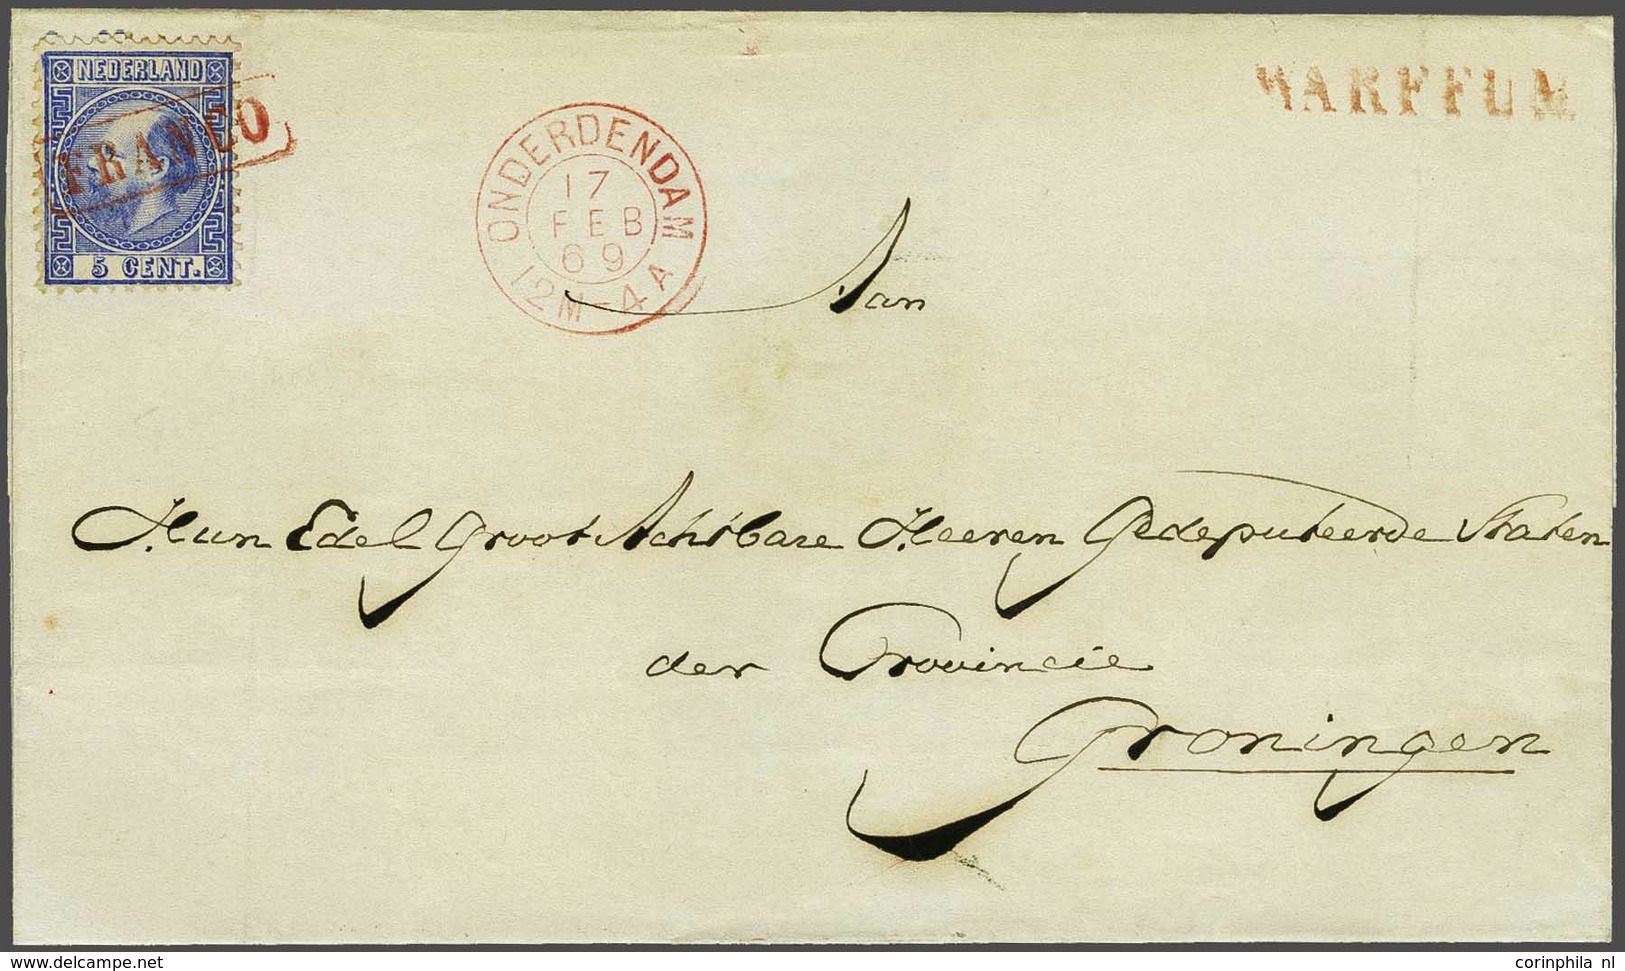 NEDERLAND
FRANCO
5 CENT.
ONDERDENDAM
17
FEB
69
12M-4A
WARFFUM
Aan
Hun Edel Groot Achtbare Heeren Gedeputeerde Staten
der Provincie
Groningen
www.delcampe.net
corinphila nl